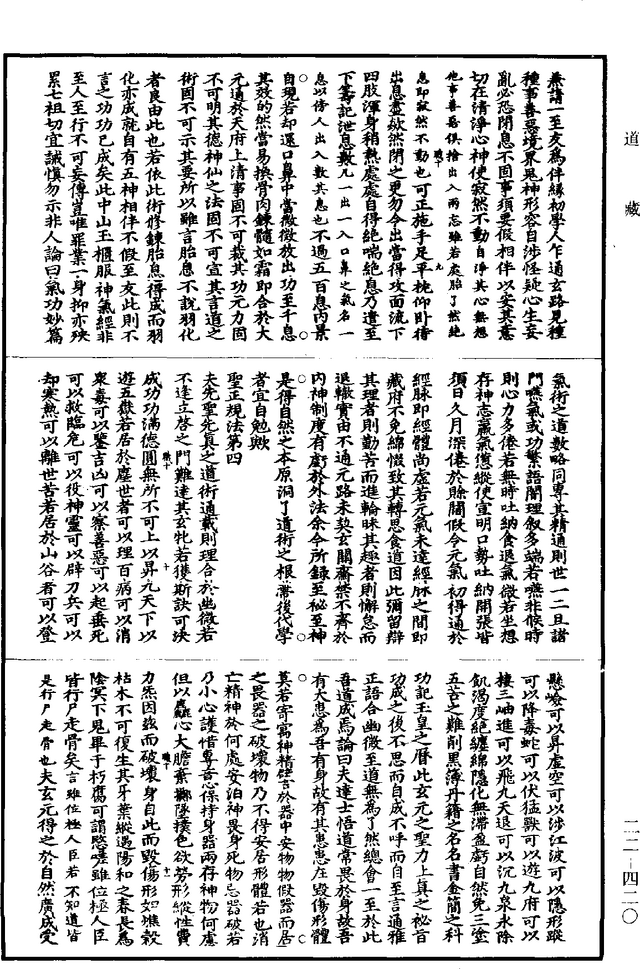 道藏
二二—四二〇
兼請一至友為伴緣初學人乍通玄路見種
種事善惡境界鬼神形容自涉怪疑心生妄
亂必恐閉息不固事須要假相伴以安其意
切在清淨心神使寂然不動自淨其心無想
他事善惡俱捨出入兩忘雖若處胎了然純
息即寂然不動也可正施手足平枕仰臥待
出息盡歘然閉之更勿令出當得攻面流下
四肢渾身稍熱處處自得絕喘絕息乃遣至
下籌記泄息數凡一出一入口鼻之氣名一
息以傍人出入數其息也不過五百息內景
自現若却還口鼻中當微微放出功至千息
其效的然當易換骨肉鍊髓如霜即合於大
元通於天府上清事固不可裁其功元力固
不可明其德神仙之法固不可宣其言道之
術固不可示其要所以難言胎息不說羽化
者良由此也若依此術修鍊胎息得成而羽
化亦成就自有五神相伴不假至友此則不
言之功功已成矣此中山王櫃服神氣經非
至人至行不可妄傳豈唯罪業一身抑亦殃
累七祖切宜誡慎勿示非人論曰氣功妙篇
氣術之道數略同專其精通則世一二且諸
門嚥氣或功繁語闇理叙多端若嚥非候時
則心力多倦若無時吐納食退氣微若坐想
存神志羸氣憊縱使宣明口勢吐納開張皆
須日久月深倦於賒闊假令元氣初得通於
經脉即經體尚虛若元氣未達經脉之間即
藏府不免綿惙致其轉思食道因此彌留辯
其理者則勤苦而進輪昧其趣者則懈怠而
退轍實由不通元路未契玄關齋禁不齊於
內神制度有虧於外法余今所錄至秘至神
是得自然之本原洞了道術之根蔕後代學
者宜自勉歟
聖正規法第四
夫先聖先真之道術通載則理合於幽微若
不逢立啓之門難達其玄牝若獲斯訣可決
成功功滿德圓無所不可上以昇九天下以
遊五嶽若居於塵世者可以理百病可以消
衆毒可以鑒吉凶可以察善惡可以起垂死
可以救臨危可以役神靈可以辟刀兵可以
却寒熱可以離世苦若居於山谷者可以登
懸嶮可以昇虛空可以涉江波可以隱形蹤
可以降毒蛇可以伏猛獸可以遊九府可以
棲三岫進可以飛九天退可以沉九泉永除
飢渴度絕纏綿隱化無滯盈虧自然免三塗
五苦之難削黑簿丹籍之名名書金簡之科
功記玉皇之曆此玄元之聖力上真之祕旨
功成之後不思而自成不呼而自至言通雅
正語合幽微至道無為了然總會一至於此
吾道成焉論曰夫達士悟道常畏於身故吾
有大患為吾有身故有其患患在毀傷形體
莫若寄寓神精譬於器中安物物假器而居
之畏器之破壞物乃不得安居形體若也消
亡精神於何處安泊神畏身死物忌器破若
乃小心護惜專意保持身器兩存神物何慮
但以麤心大膽棄擲墜撲色欲勞形縱性費
力炁因茲而破壞身自此而毀傷形如燋穀
枯木不可復生其牙葉縱遇陽和之春長為
陰冥下鬼畢于朽腐可謂愍嗟雖位極人臣
皆行尸走骨矣言雖位極人臣若不知道皆
是行尸走骨也夫玄元得之於自然廣成受